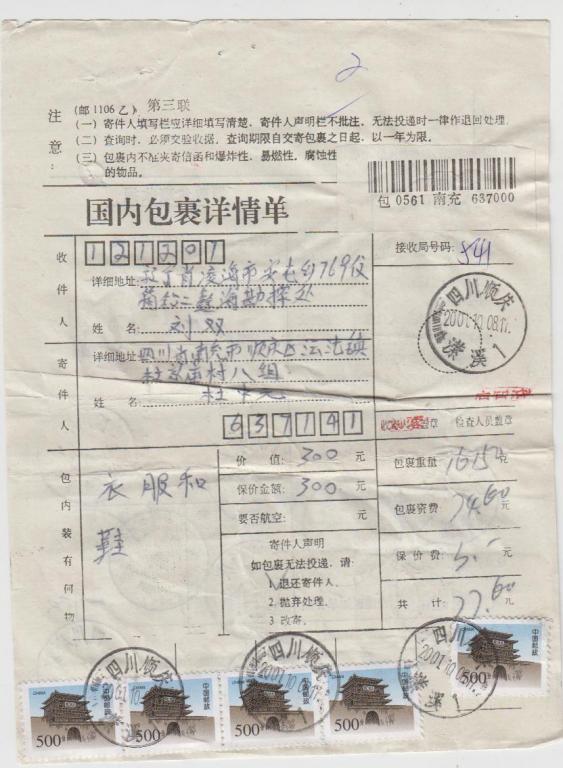 2
(邮1106乙) 第三联
注意:
(一) 寄件人填写栏应详细填写清楚、寄件人声明栏不批注、无法投递时一律作退回处理。
(二) 查询时、必须交验收据、查询期限自交寄包裹之日起、以一年为限。
(三) 包裹内不准夹寄信函和爆炸性、易燃性、腐蚀性
的物品。
包 0561 南充 637000
国内包裹详情单
接收局号码: 541
收件人
121207
详细地址:
姓名: 刘双
四川顺庆
2001.10.08.17
潆溪
1
寄件人
详细地址: 四川省南充市顺庆区
村八组
姓名:
637141
收寄人员盖章 检查人员盖章
包内装有何物
衣服和
鞋
价值: 300 元
保价金额: 300 元
要否航空: 元
寄件人声明
如包裹无法投递、请:
1. 退还寄件人.
2. 抛弃处理.
3. 改寄.
包裹重量: 克
包裹资费: 元
保价费: 元
共计: 元
四川顺庆
2001.10.08.17
潆溪
1
CHINA
中国邮政
500分
CHINA
中国邮政
500分
CHINA
中国邮政
500分
CHINA
中国邮政
500分
中国邮政
500分